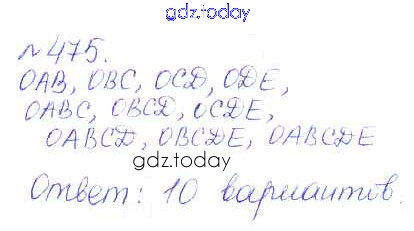 gdz.today
№475.
OAB, OBC, OCD, ODE,
OABC, OBCD, OCDE,
OABCD, OBCDE, OABCDE
gdz.today
Ответ: 10 вариантов.